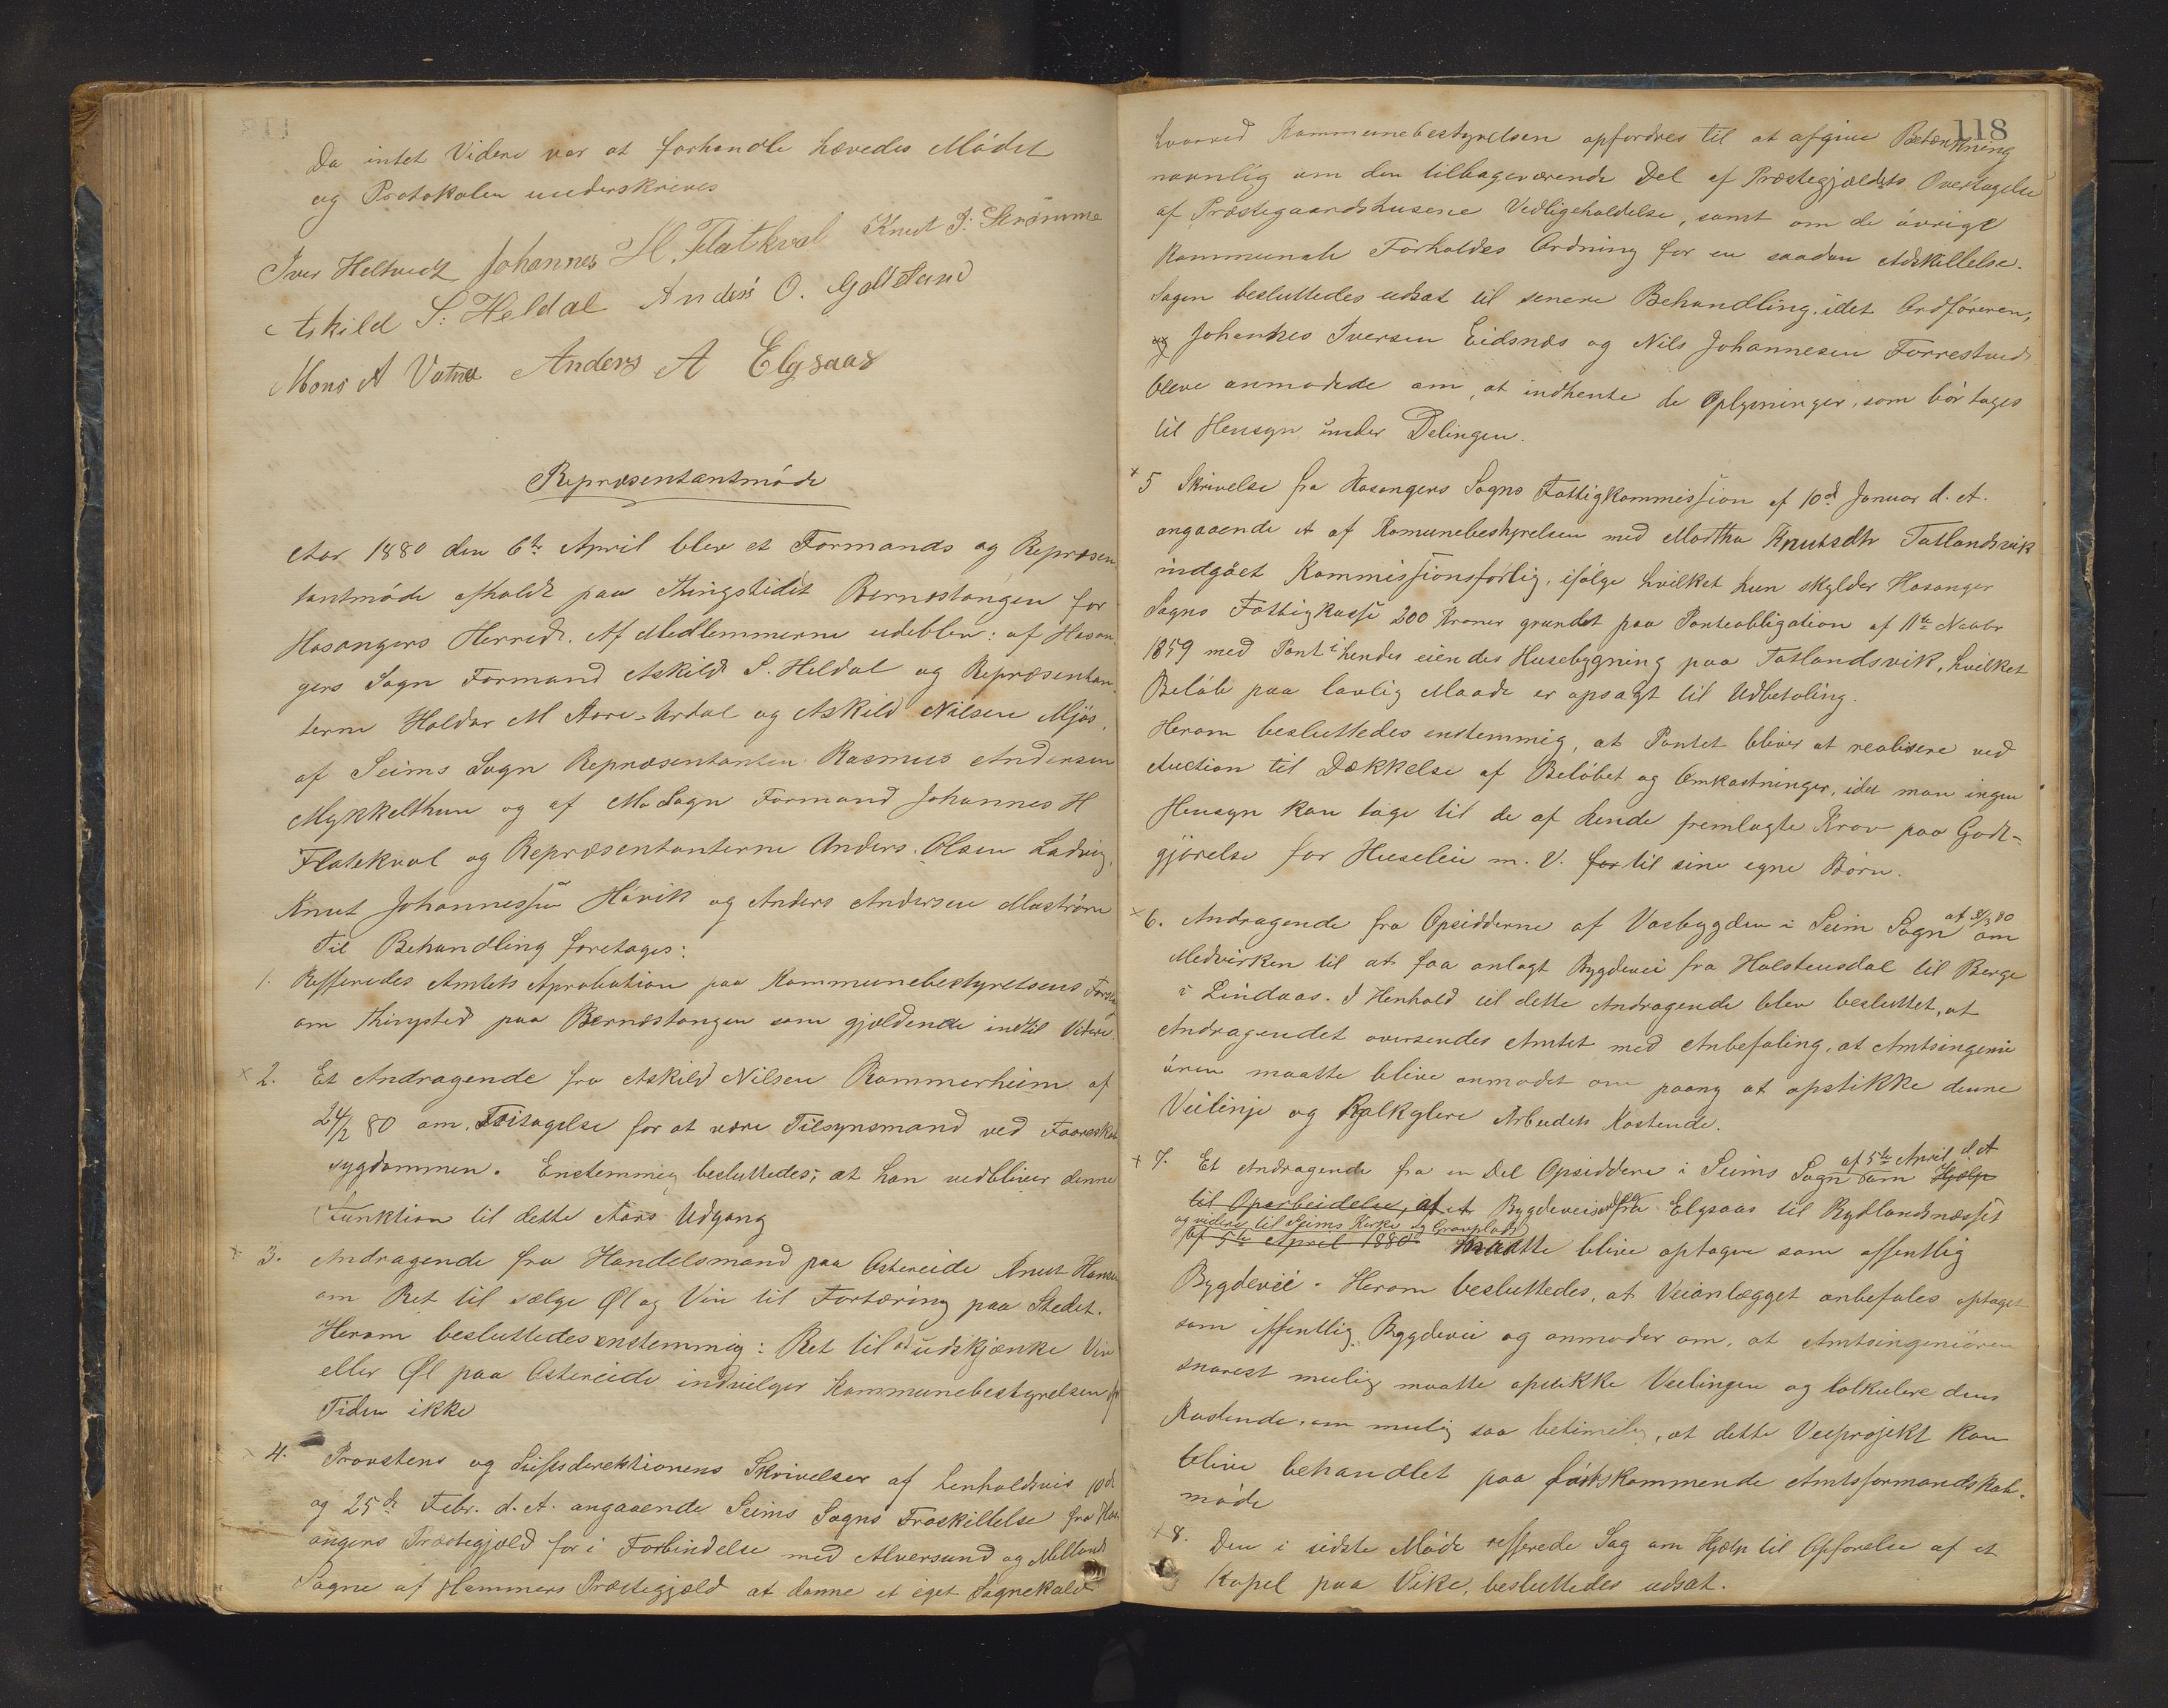 Da intet Videre var at forhandle hævedes Mødet
og Protokolen underskrives
Iver Heltvedt Johannes H. Flatkval Knut J: Strømme
Askild S: Heldal Anders O. Gåtland
Mons A Vatne Anders A Elysaas
Repræsentantmøde
Aar 1880 den 6te April blev et Formands og Repræsen
tantmøde afholdt paa Thingstedet Bernestangen for
Hosangers Herred. Af Medlemmerne udeblev: af Hosan
gers Sogn Formand Askild S. Heldal og Repræsentan
terne Haldor M Aare-Ardal og Askild Nilsen Mjøs,
af Seims Sogn Repræsentanten Rasmus Andersen
Mykkelthun og af Mo Sogn Formand Johannes H
Flatekval og Repræsentanterne Anders Olsen Ladvig,
Knut Johannessen Håvik og Anders Andersen Mostrøm
Til Behandling foretages:
1. Refferedes Amtets Aprobation paa Kommunebestyrelsens Forslag
om Thingsted paa Bernestangen som gjældende indtil Videre.
× 2. Et Andragende fra Askild Nilsen Rammerheim af
24/2 80 om Fritagelse for at være Tilsynsmand ved Faareskab
sygdommen. Enstemmig besluttedes; at han vedbliver denne
Funktion til dette Aars Udgang
× 3. Andragende fra Handelsmand paa Ostereide Knut Hansen
om Ret til sælge Øl og Vin til Fortæring paa Stedet.
Herom besluttedes enstemmig: Ret til at udskjænke Vin
eller Øl paa Ostereide indvilger Kommunebestyrelsen for
Tiden ikke
× 4. Provstens og Stiftsdirektionens Skrivelser af henholdsvis 10de
og 25de Febr. d. A. angaaende Seims Sogns Fraskillelse fra Hos
angers Præstegjæld for i Forbindelse med Alversund og Mellands
Sogne af Hammers Præstegjæld at danne et eget Sognekald
118
hvorved Kommunebestyrelsen opfordres til at afgive Betænkning
navnlig om den tilbageværende Del af Præstegjældets Overtagelse
af Præstegaardshusene Vedligeholdelse, samt om de øvrige
Kommunale Forholdes Ordning for en saadan Adskillelse.
Sagen besluttedes udsat til senere Behandling, idet Ordføreren,
og Johannes Iversen Eidsnæs og Nils Johannesen Forrestved
bleve anmodede om, at indhente de Oplysninger, som bør tages
til Hensyn under Delingen.
× 5 Skrivelse fra Hosangers Sogns Fattigkommission af 10de Januar d. A.
angaaende et af Komunebestyrelsen med Martha Knutsdtr Tatlandsvik
indgået Kommissionsforlig, ifølge hvilket hun skylder Hosanger
Sogns Fattigkasse 200 Kroner grundet paa Panteobligation af 11te Novbr
1859 med Pant i hendes eiendes Husebygning paa Tatlandsvik, hvilket
Beløb paa lovlig Maade er opsagt til Udbetaling.
Herom besluttedes enstemmig, at Pantet bliver at realisere ved
Auction til Dækkelse af Beløbet og Omkostninger, idet man ingen
Hensyn kan tage til de af hende fremlagte Krav paa Godt-
gjørelse for Huseleie m. V. for til sine egne Børn.
× 6. Andragende fra Opsidderne af Vasbygden i Seim Sogn af 3/3 80 om
Medvirken til at faa anlagt Bygdevei fra Halstensdal til Berge
i Lindaas. I Henhold til dette Andragende blev besluttet, at
Andragendet oversendes Amtet med Anbefaling, at Amtsingeni
øren maatte blive anmodet om paany at opstikke denne
Veilinje og Kalkylere Arbeidets Kostende.
× 7. Et Andragende fra en Del Opsiddere i Seims Sogn af 5te April d. A om Hjælp
til Oparbeidelse af et Bygdeveis fra Elysaas til Rydlandsnæsset
og videre til Seims Kirke og Gravplads
af 5te April 1880 maatte blive optagen som offentlig
Bygdevei. Herom besluttedes, at Veianlægget anbefales optaget
som offentlig Bygdevei og anmoder om, at Amtsingeniøren
snarest mulig maatte opstikke Veilingen og kalkulere dens
Kostende, om mulig saa betimelig, at dette Veiprojekt kan
blive behandlet paa førstkommende Amtsformandskab-
møde
× 8. Den i sidste Møde refferede Sag om Hjælp til Opførelse af et
Kapel paa Vike, besluttedes udsat.